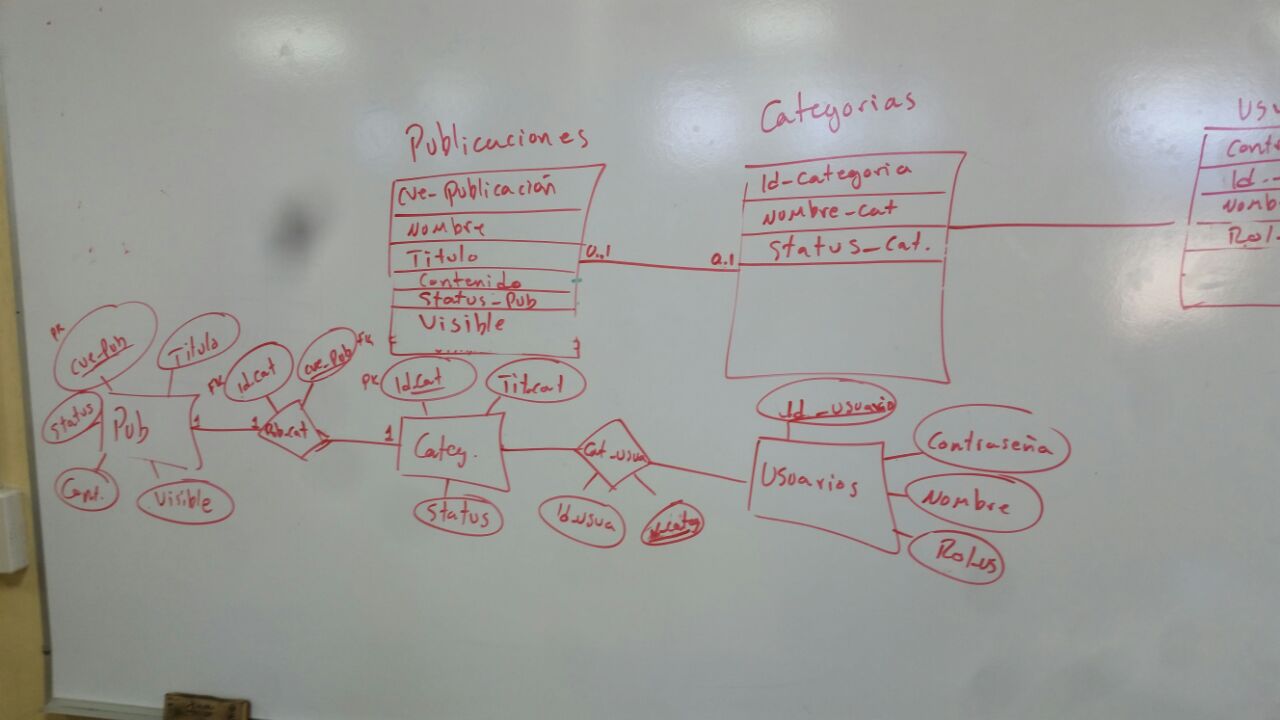 Publicaciones
Cve-Publicación
Nombre
Titulo
Contenido
Status-Pub
Visible
0..1
0.1
Categorias
Id-Categoria
Nombre-Cat
Status_Cat.
Usu
Contr
Id.
Nomb
Rol-
PK
Cve-Pub
Titulo
Status
Pub
Cont.
Visible
1
FK
Id.Cat
Cve-Pub
FK
1
Pub-cat
1
PK
Id.Cat
Tit.cat
Categ.
Status
Cat_usua
Id.usua
Id_usuario
Usuarios
Contraseña
Nombre
Rol_us